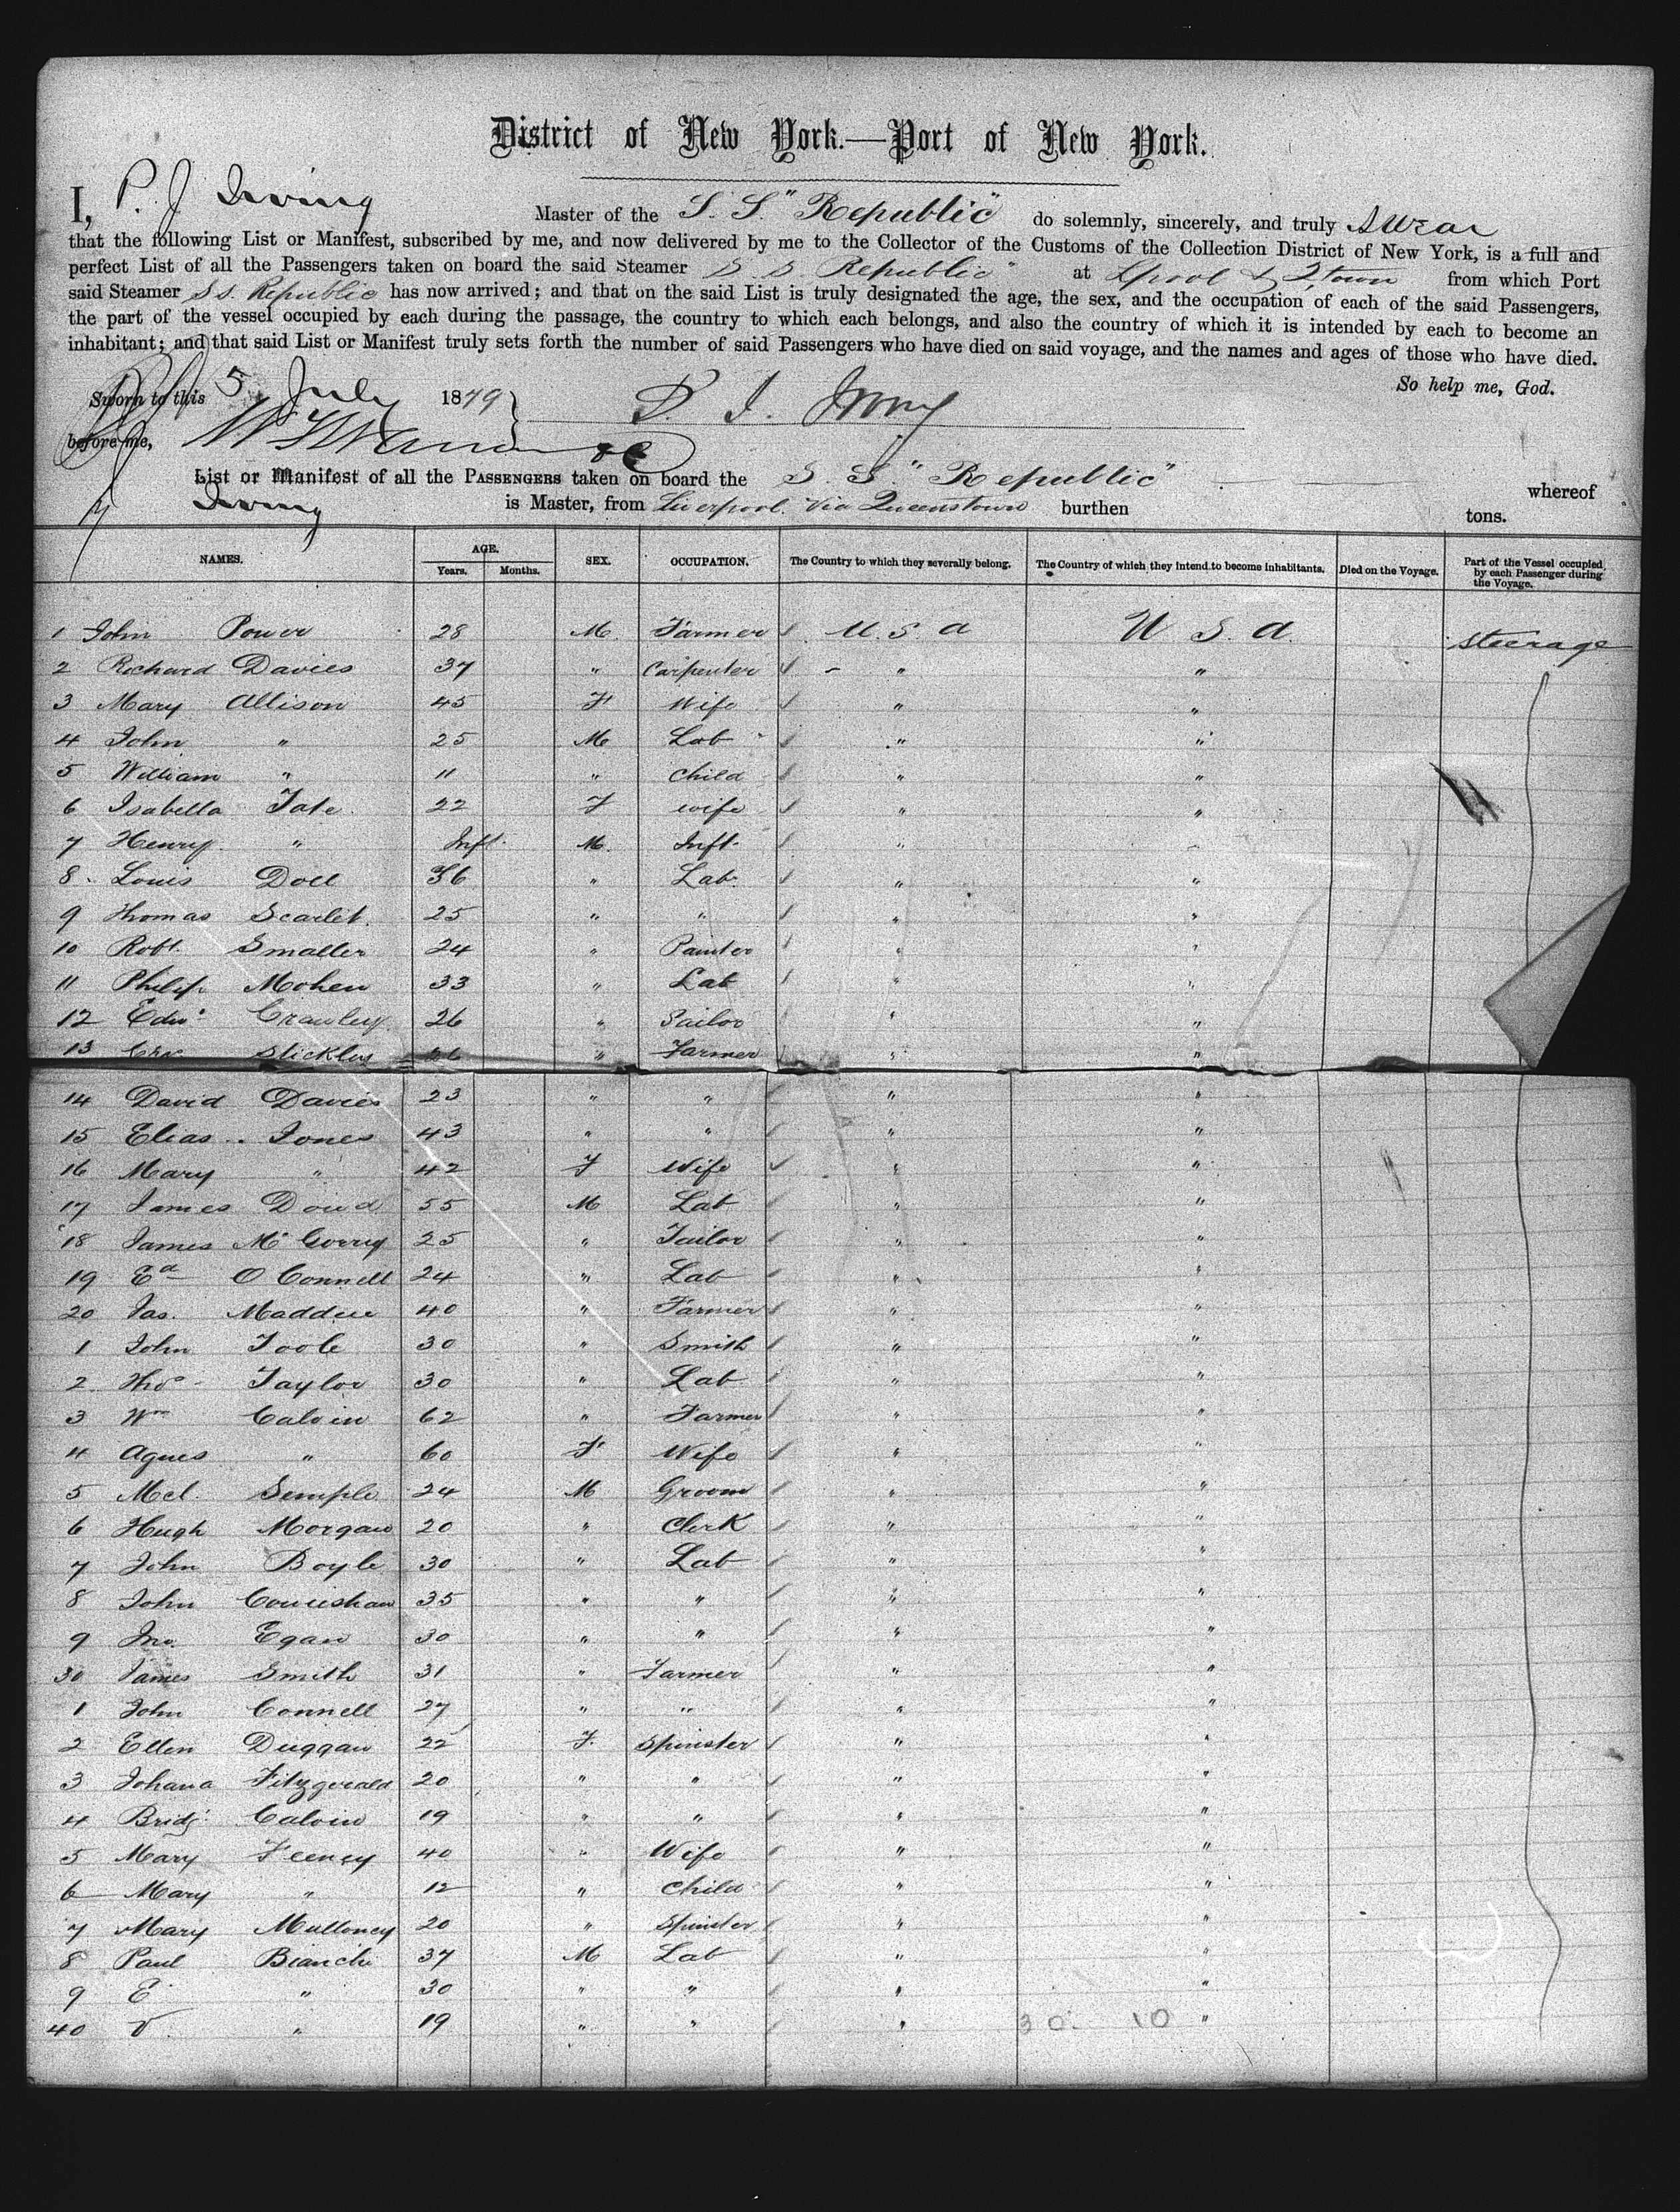 District of New York.—Port of New York.
I, P. J. Irving Master of the S. S. "Republic" do solemnly, sincerely, and truly Swear
that the following List or Manifest, subscribed by me, and now delivered by me to the Collector of the Customs of the Collection District of New York, is a full and
perfect List of all the Passengers taken on board the said Steamer S. S. Republic" at Lpool & Qtown from which Port
said Steamer S s. Republic has now arrived; and that on the said List is truly designated the age, the sex, and the occupation of each of the said Passengers,
the part of the vessel occupied by each during the passage, the country to which each belongs, and also the country of which it is intended by each to become an
inhabitant; and that said List or Manifest truly sets forth the number of said Passengers who have died on said voyage, and the names and ages of those who have died.
So help me, God.
Sworn to this 5 July 1879 P. J. Irving
before me,
List or Manifest of all the PASSENGERS taken on board the S. S. "Republic" whereof
Irving is Master, from Liverpool. Via Queenstown burthen tons.
NAMES. AGE. SEX. OCCUPATION. The Country to which they severally belong. The Country of which they intend to become inhabitants. Died on the Voyage. Part of the Vessel occupied by each Passenger during the Voyage.
Years. Months.
1 John Power 28 M. Farmer U. S. a U S. a. Steerage
2 Richard Davies 37 " Carpenter " "
3 Mary Allison 45 F Wife " "
4 John " 25 M Lab " "
5 William " 11 " Child " "
6 Isabella Tate 22 F wife " "
7 Henry " Inft. M. Inft. " "
8 Louis Doll 36 " Lab. " "
9 Thomas Scarlet 25 " " " "
10 Robt. Smaller 24 " Painter " "
11 Philip Mohen 33 " Lab " "
12 Edwd Crawley 26 " Sailor " "
13 Stickley 26 " Farmer " "
14 David Davies 23 " " " "
15 Elias Jones 43 " " " "
16 Mary " 42 F Wife " "
17 James Doud 55 M Lab " "
18 James McGorry 25 " Tailor " "
19 Ed O Connell 24 " Lab " "
20 Jas. Madden 40 " Farmer " "
1 John Toole 30 " Smith " "
2 Thos Taylor 30 " Lab " "
3 Wm Calvin 62 " Farmer " "
4 Agnes " 60 F Wife " "
5 Mcl. Semple 24 M Groom " "
6 Hugh Morgan 20 " Clerk " "
7 John Boyle 30 " Lab " "
8 John 35 " " " "
9 Jno. Egan 30 " " " "
30 James Smith 31 " Farmer " "
1 John Connell 27 " " " "
2 Ellen Duggan 22 F. Spinster " "
3 Johana Fitzgerald 20 " " " "
4 Bridj. Calvin 19 " " " "
5 Mary Feeney 40 " Wife " "
6 Mary " 12 " Child " "
7 Mary Mulloney 20 " Spinster " "
8 Paul Bianchi 37 M Lab " "
9 E " 30 " " " "
40 V. " 19 " " " 30. 10 "